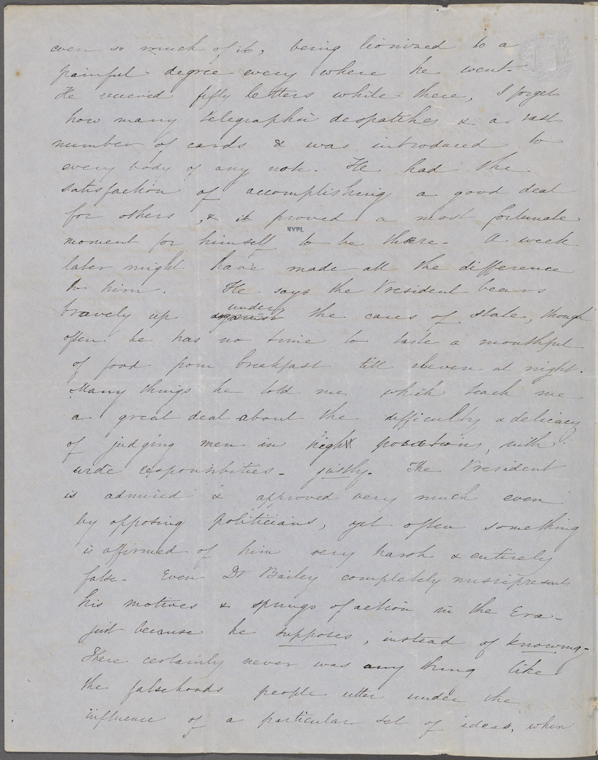 even so much of it, being lionized to a
painful degree every where he went.
He received fifty letters while there, I forget
how many telegraphic despatches & a vast
number of cards & was introduced to
every body of any note. He had the
satisfaction of accomplishing a good deal
for others & it proved a most fortunate
NYPL
moment for himself to be there. A week
later might have made all the difference
to him. He says the President bears
under
bravely up against the cares of state, though
often he has no time to taste a mouthful
of food from breakfast till eleven at night.
Many things he told me, which teach me
a great deal about the difficulty & delicacy
of judging men in high positions, with
wide responsibilities - justly. The President
is admired & approved very much even
by opposing politicians, yet often something
is affirmed of him very harsh & entirely
false. Even Dr Bailey completely misrepresents
his motives & springs of action in the Era -
just because he supposes, instead of knowing -
There certainly never was any thing like
the falsehoods people utter under the
influence of a particular set of ideas, when